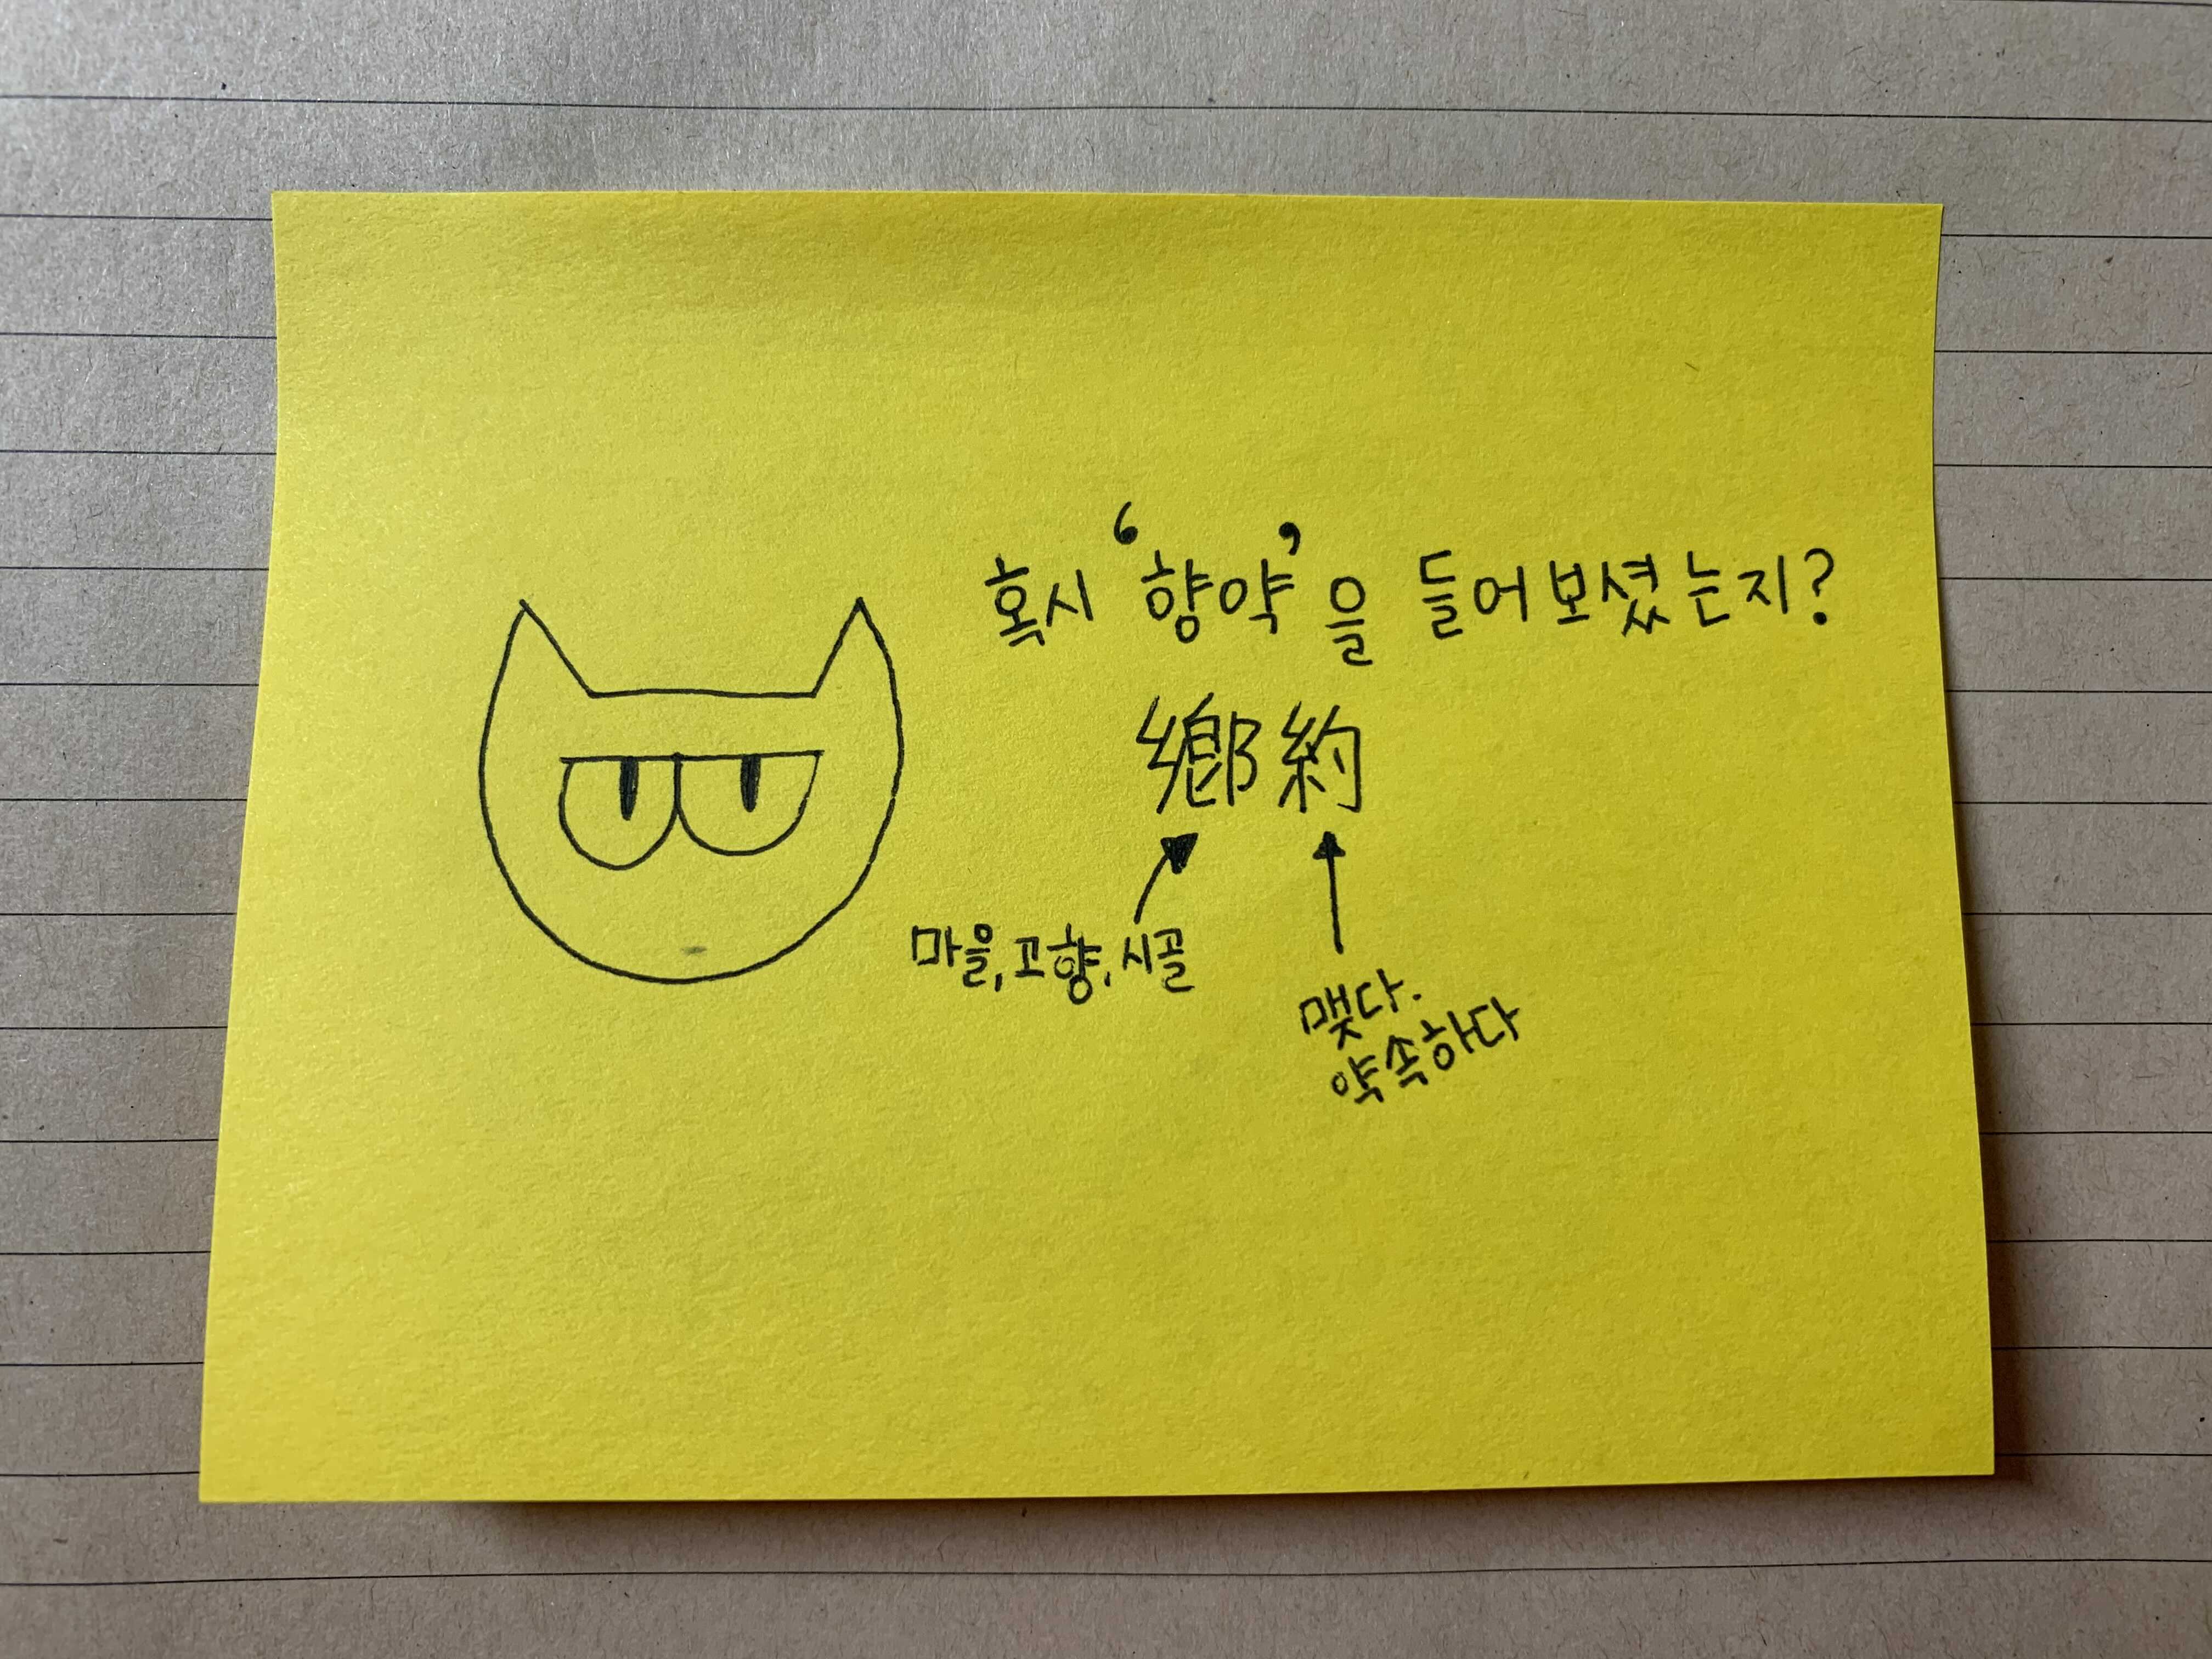 혹시 '향약'을 들어보셨는지?
鄕約
마을, 고향, 시골
맺다.
약속하다